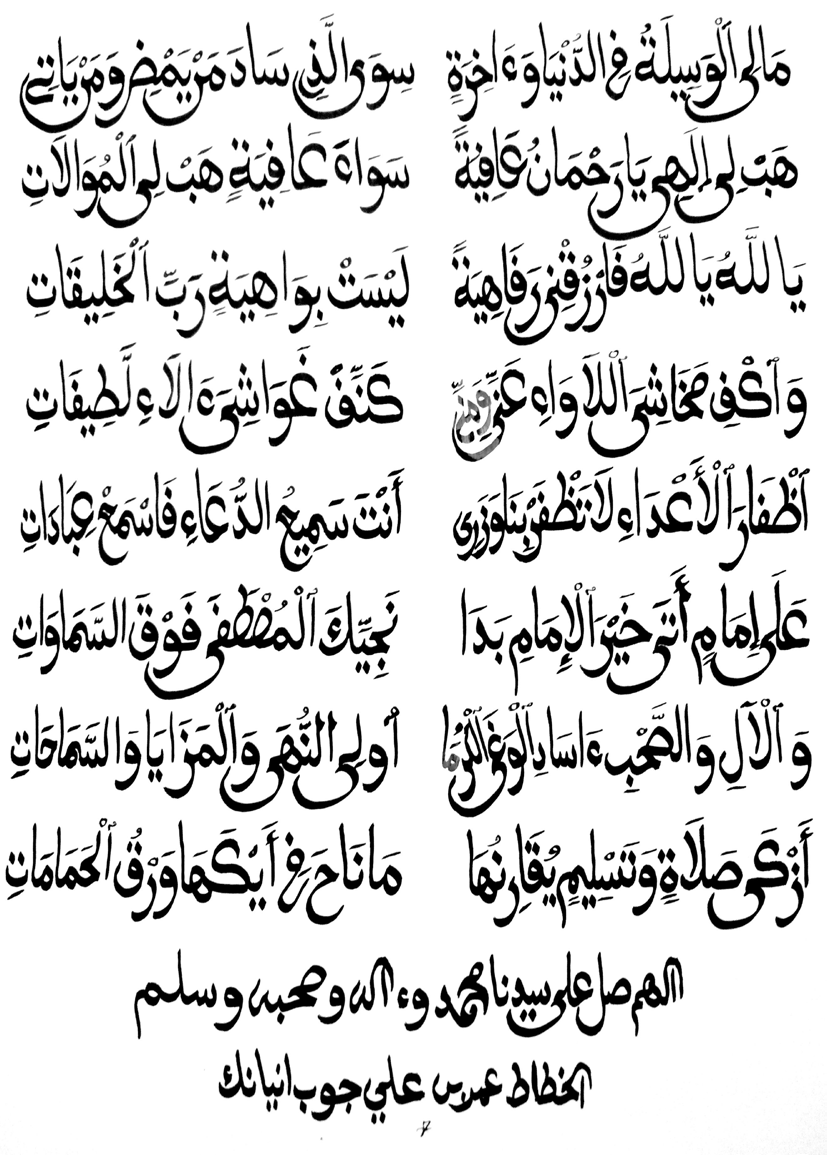 مَالِى ٱلْوَسِيلَةُ فِى الدُّنْيَا وَءَاخِرَةٍ سِوَى الَّذِى سَادَ مَنْ يَمْضِى وَمَنْ يَاتِى
هَبْ لِى إِلَهِى يَا رَحْمَانُ عَافِيَةً سَوَاءَ عَافِيَةٍ هَبْ لِى ٱلْمُوَالَاتِ
يَا اللَّهُ يَا اللَّهُ فَارْزُقْنِى رَفَاهِيَةً لَيْسَتْ بِوَاهِيَةٍ رَبِّ ٱلْخَلِيقَاتِ
وَٱكْفِ مَخَاشِىَ ٱللَّاوَاءِ عَنِّى غَوَاشِىَ ءَالَاءِ لَّطِيفَاتِ
ٱظْفَارَ ٱلْأَعْدَاءِ لَا تَظْفَرْ بِنَا وَزَرِى أَنْتَ سَمِيعُ الدُّعَاءِ فَاسْمَعْ عِبَادَاتِ
عَلَى إِمَامٍ أَتَى خَيْرَ ٱلْإِمَامِ بَدَا نَجِيِّكَ ٱلْمُصْطَفَى فَوْقَ السَّمَاوَاتِ
وَٱلْآلِ وَالصَّحْبِ ءَاسَادِ ٱلْوَغَى ٱلْكُرَمَا أُولِى النُّهَى وَٱلْمَزَايَا وَالسَّمَاحَاتِ
أَزْكَى صَلَاةٍ وَتَسْلِيمٍ يُقَارِنُهَا مَا نَاحَ فِى أَيْكَهَا وَرْقُ ٱلْحَمَامَاتِ
اللهم صل على سيدنا محمد وءاله وصحبه وسلم
الخطاط علي جوب انيانك